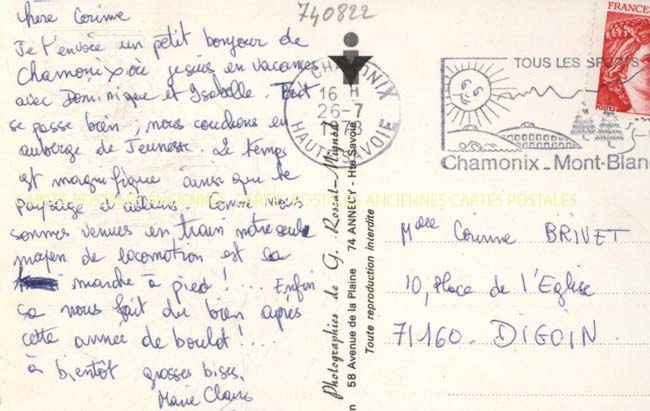 740822
chère Corinne
Je t'envoie un petit bonjour de
Chamonix où je suis en vacances
avec Dominique et Isabelle. Tout
se passe bien, nous couchons en
auberge de Jeunesse. Le temps
est magnifique ainsi que le
paysage d'ailleurs. Comme nous
sommes venues en train notre seule
moyen de locomotion est la
marche à pied !... Enfin
ça nous fait du bien après
cette année de boulot !...
à bientôt grosses bises.
Marie Claire
CARTES POSTALES ANCIENNES CARTES POSTALES ANCIENNES CARTES POSTALES
Photographies de G. Rosset-Mignod
58 Avenue de la Plaine 74 ANNECY - Hte-Savoie
Toute reproduction interdite
CHAMONIX
16 H
26-7
HAUTE SAVOIE
TOUS LES SPORTS
Chamonix_Mont-Blanc
FRANCE
Mdelle Corinne BRIVET
10, Place de l'Eglise
71160. DIGOIN.